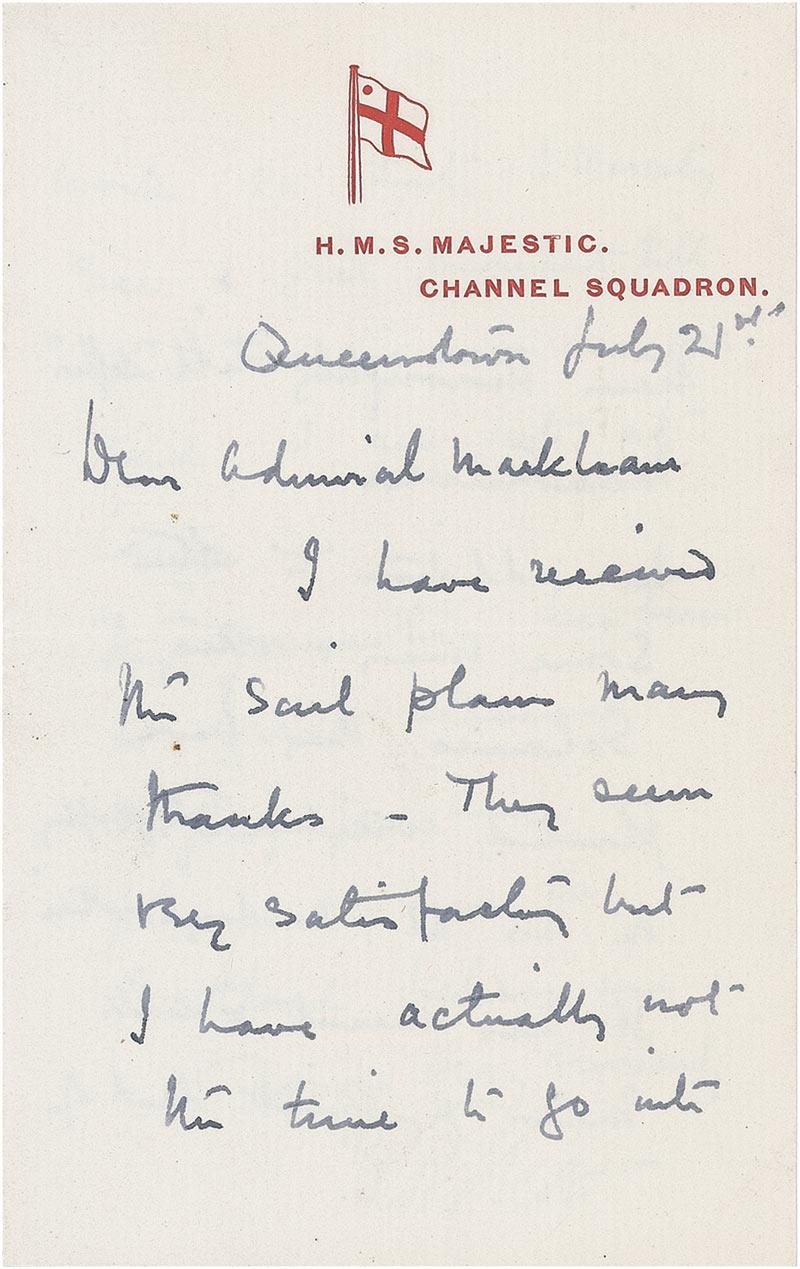 H. M. S. MAJESTIC.
CHANNEL SQUADRON.
Queenstown July 21st.
Dear Admiral Markham
I have received
the sail plans many
thanks – They seem
very satisfactory but
I have actually not
the time to go into